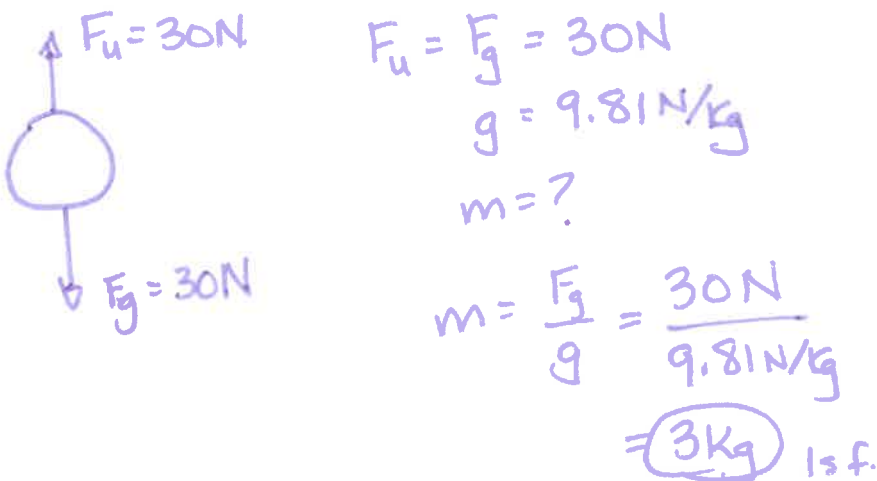 Fu = 30N
Fg = 30N
Fu = Fg = 30N
g = 9.81 N/Kg
m = ?
m = Fg/g = 30N/9.81 N/Kg
= 3Kg 1sf.